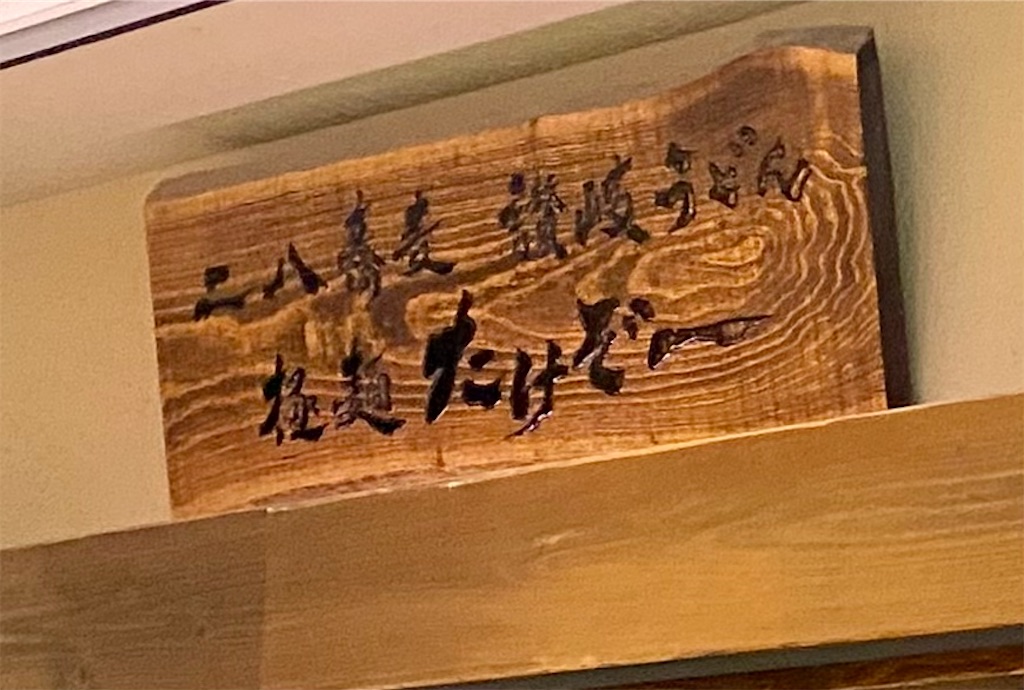 二八蕎麦 讃岐うどん
極麺 たけぞー